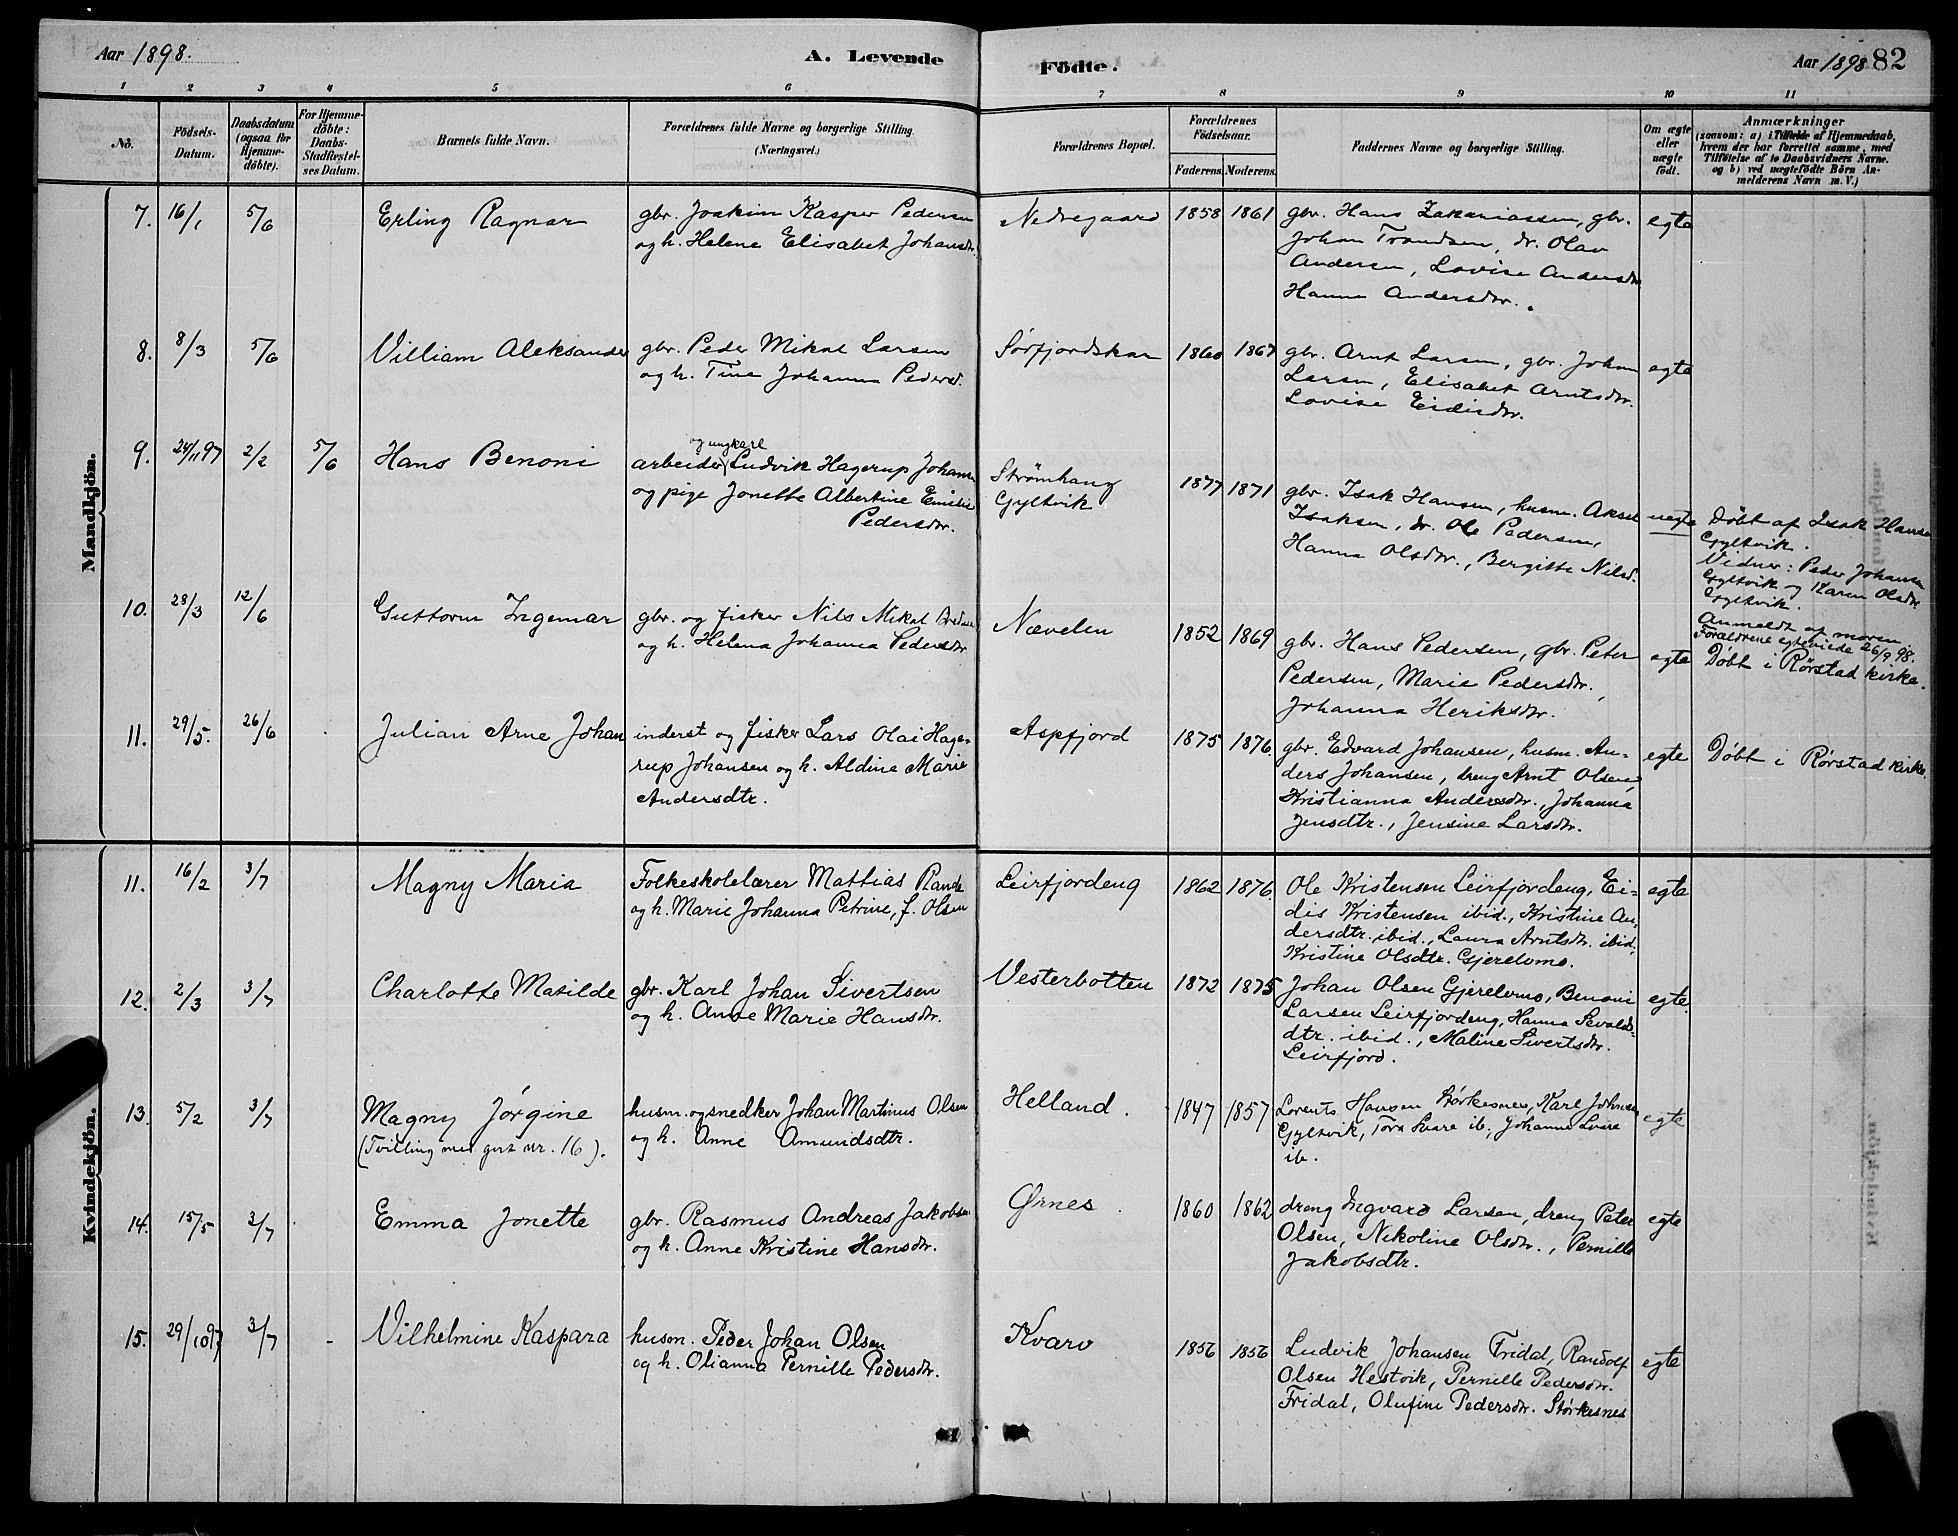 Aar 1898.
A. Levende
Födte.
Aar 1898
82
1
2
3
4
5
6
7
8
9
10
11
No.
Födsels-
Datum.
Daabsdatum
(ogsaa for
Hjemme-
döbte).
For Hjemme-
döbte:
Daabs-
Stadfæstel-
ses Datum.
Barnets fulde Navn.
Forældrenes fulde Navne og borgerlige Stilling.
(Næringsvei.)
Forældrenes Bopæl.
Forældrenes
Födselsaar.
Faderens.
Moderens.
Faddernes Navne og borgerlige Stilling.
Om ægte
eller
uægte
födt.
Anmærkninger
(saasom: a) i Tilfælde af Hjemmedaab,
hvem der har forrettet samme, med
Tilföielse af to Daabsvidners Navne.
og b) ved uægtefödte Börn An-
melderens Navn m. V.)
Mandkjön.
7. 16/1 5/6
Erling Ragnar
gbr. Joakim Kasper Pedersen
og h. Helene Elisabet Johansdr.
Nedregaard
1858 1861
gbr. Hans Zakariassen, gbr.
Johan Trondsen, dr. Olav
Andersen, Lovise Andersdr
Hanna Andersdr.
egte
8. 8/3 5/6
Villiam Aleksander
gbr. Peder Mikal Larsen
og h. Tina Johanna Pedersd.
Sørfjordskar
1860 1867
gbr. Arnt Larsen, gbr. Johan
Larsen, Elisabet Arntsdr.
Lovise Eidisdr.
egte
9. 24/11 97 2/2 5/6
Hans Benoni
og ungkarl
arbeider Ludvik Hagerup Johansen
og pige Jonette Albertine Emilie
Pedersdr.
Strømhaug
Gyltvik
1877 1871
gbr. Isak Hansen, husm. Aksel
Isaksen, dr. Ole Pedersen,
Hanna Olsdr., Bergitte Nilsd.
uegte
Døbt af Isak Hansen
Gyltvik.
Vidner: Peder Johansen
Gyltvik og Karen Olsdr
Gyltvik.
Anmeldt af moren.
Forældrene egteviede 26/9 98.
10. 28/3 12/6
Guttorm Ingemar
gbr. og fisker Nils Mikal
og h. Helena Johanna Pedersdr
Nævelen
1852 1869
gbr. Hans Pedersen, gbr. Peter
Pedersen, Marie Pedersdr.,
Johanna Heriksdr.
egte
Døbt i Rørstad kirke.
11. 29/5. 26/6
Julian Arne Johan
inderst og fisker Lars Olai Hage-
rup Johansen og h. Aldine Marie
Andersdtr.
Aspfjord
1875 1876.
gbr. Edvard Johansen, husm. An-
ders Johansen, dreng Arnt Olsen,
Kristianna Andersdr., Johanna
Jensdtr., Jensine Larsdr.
egte
Døbt i Rørstad kirke.
Kvindekjön.
11. 16/2 3/7
Magny Maria
Folkeskolelærer Mattias Rande
og h. Marie Johanna Petrine, f. Olsen
Leirfjordeng
1862 1876.
Ole Kristensen Leirfjordeng, Ei-
dis Kristensen ibid., Kristine An-
dersdtr. ibid., Laura Arntsdr. ibid.
Kristine Olsdtr. Gjerelvmo.
egte
12. 2/3 3/7
Charlotte Matilde
gbr. Karl Johan Sivertsen
og h. Anne Marie Hansdr.
Vesterbotten
1872 1875
Johan Olsen Gjerelvmo, Benoni
Larsen Leirfjordeng, Hanna Sevalds-
dtr. ibid., Maline Sivertsdr.
Leirfjord.
egte.
13. 5/2 3/7
Magny Jørgine
(Tvilling med gut nr. 16).
husm. og snedker Johan Martinus Olsen
og h. Anne Amundsdtr.
Helland.
1847 1857
Lorents Hansen Størkesnes, Karl Johnsen
Gyltvik, Tora Svare ib., Johanna Svare
ib.
egte
14. 15/5 3/7
Emma Jonette
gbr. Rasmus Andreas Jakobsen
og h. Anne Kristine Hansdr.
Ørnes
1860 1862
dreng Ingvard Larsen, dreng Peter
Olsen, Nikoline Olsdr., Pernille
Jakobsdtr.
egte
15. 29/10 97 3/7
Vilhelmine Kaspara
husm. Peder Johan Olsen
og h. Olianna Pernille Pedersdr.
Kvarv
1856 1856
Ludvik Johansen Fridal, Randolf
Olsen Hestvik, Pernille Pedersdr.
Fridal, Olufine Pedersdr. Størkesnes
egte